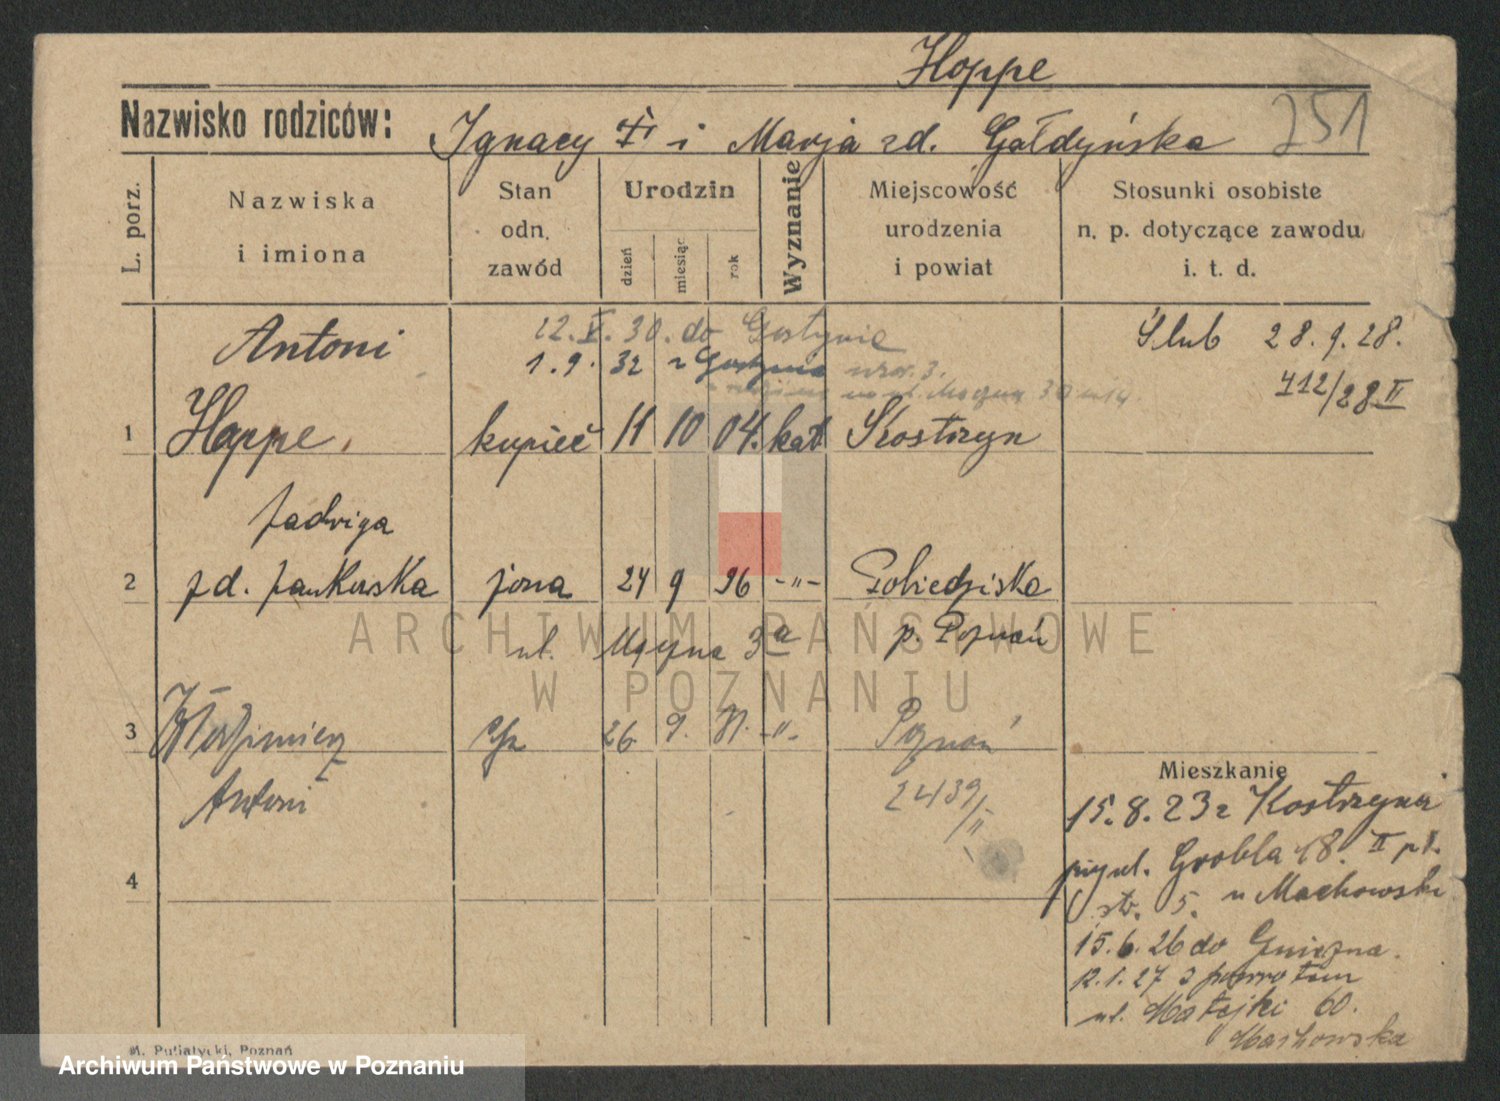 Hoppe
Nazwisko rodziców: Ignacy i Marja zd. Gałdyńska 251
L. porz.
Nazwiska i imiona
Stan odn. zawód
Urodzin
dzień miesiąc rok
Wyznanie
Miejscowość urodzenia i powiat
Stosunki osobiste n. p. dotyczące zawodu i. t. d.
22. V. 30. do Gostynia
1. 9. 32 z Gostynia
Ślub 28. 9. 28.
712/28 II
Antoni
1 Hoppe kupiec 11 10 04. kat Kostrzyn
Jadwiga
2 zd. Jankowska żona 24 9 96 -"- Pobiedziska
ul. Mączna 3a p. Poznań
3 Włodzimierz 26 9. 31. -"- Poznań
Antoni 2439/II
4
Mieszkanie
15. 8. 23 z Kostrzyna
ul. Grobla 18. II pt.
str. 5. u Machowski
15. 6. 26 do Gniezna.
12. 1. 27 z powrotem
ul. Matejki 60.
Machowska
M. Putiatycki, Poznań
ARCHIWUM PAŃSTWOWE
W POZNANIU
Archiwum Państwowe w Poznaniu